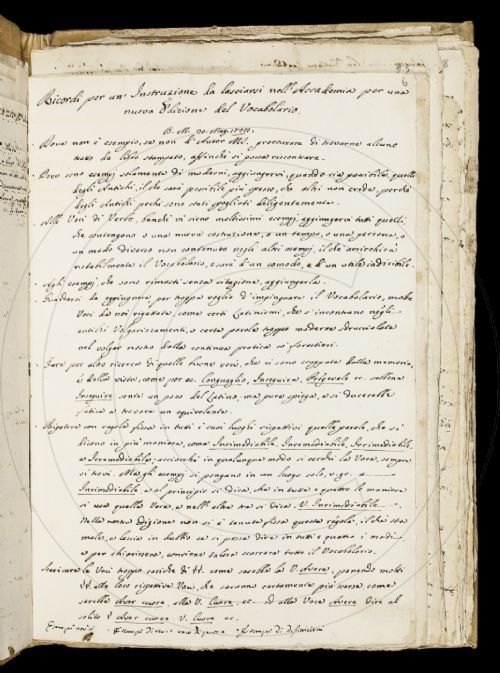 Ricordi per un' Instruzione da lasciarsi nell'Accademia per una
nuova Edizione del Vocabolario.
Dove non è esempio, se non d'Autor MS., procurare di trovarne alcuno
tratto da libro stampato, affinchè si possa riscontrare.
Dove sono esempj solamente de' moderni, aggiungervi, quando sia possibile, quelli
degli Antichi, il che sarà possibile più spesso, che altri non creda, perchè
degli Antichi pochi sono stati spogliati diligentemente.
Alle Voci di Verbo, benchè vi siene moltissimi esempj, aggiungervi tutti quelli,
che contengono o una nuova costruzione, o un tempo, o una persona, o
un modo diverso non contenuto negli altri esempj, il che arricchirà
notabilmente il Vocabolario, e sarà d'un comodo, e d'un utile indicibile.
Agli esempj, che sono rimasti senza citazione, aggiungerla.
Guardarsi da aggiugnere per troppa voglia d'impinguare il Vocabolario, molte
Voci da noi rigettate, come certi Latinismi, che s'incontrano negli
antichi Volgarizzamenti, o certe parole troppo moderne sdrucciolate
nel volgar nostro dalla continua pratica co' forestieri.
Fare per altro ricerca di quelle buone voci, che ci sono scappate dalla memoria,
o dalla vista, come per es. Conguaglio, Inseguire, ec. sebbene
Inseguire sente un poco del Latino, ma pure spiega, e si durerebbe
fatica a trovare un equivalente.
Ripetere con regola fissa in tutti i suoi luoghi rispettivi quelle parole, che si
dicono in più maniere, come Inrimediabile, Inremediabile, Irrimediabile,
e Irremediabile, acciocchè in qualunque modo si cerchi la Voce, sempre
si trovi. Ma gli esempj si pongano in un luogo solo, v. gr. a
Inrimediabile, e a principio si dica, che in tutte e quattro le maniere
si usa quella Voce, e nell'altre tre si dica V. Inrimediabile.
Nella nostra Edizione non si è tenuta fissa questa regola, il che sta
male, e lascia in dubbio se si possa dire in tutti e quanti i modi,
e per chiarirsene, conviene talora scorrere tutto il Vocabolario.
Scaricare le Voci troppo cariche di §§. come sarebbe la V. Avere, ponendo molti
§§. alle loro rispettive Voci, che saranno certamente più scarse, come
sarebbe Aver cuore, alla V. Cuore, ec. ed alla Voce Avere dire al
solito § Aver cuore V. Cuore ec.